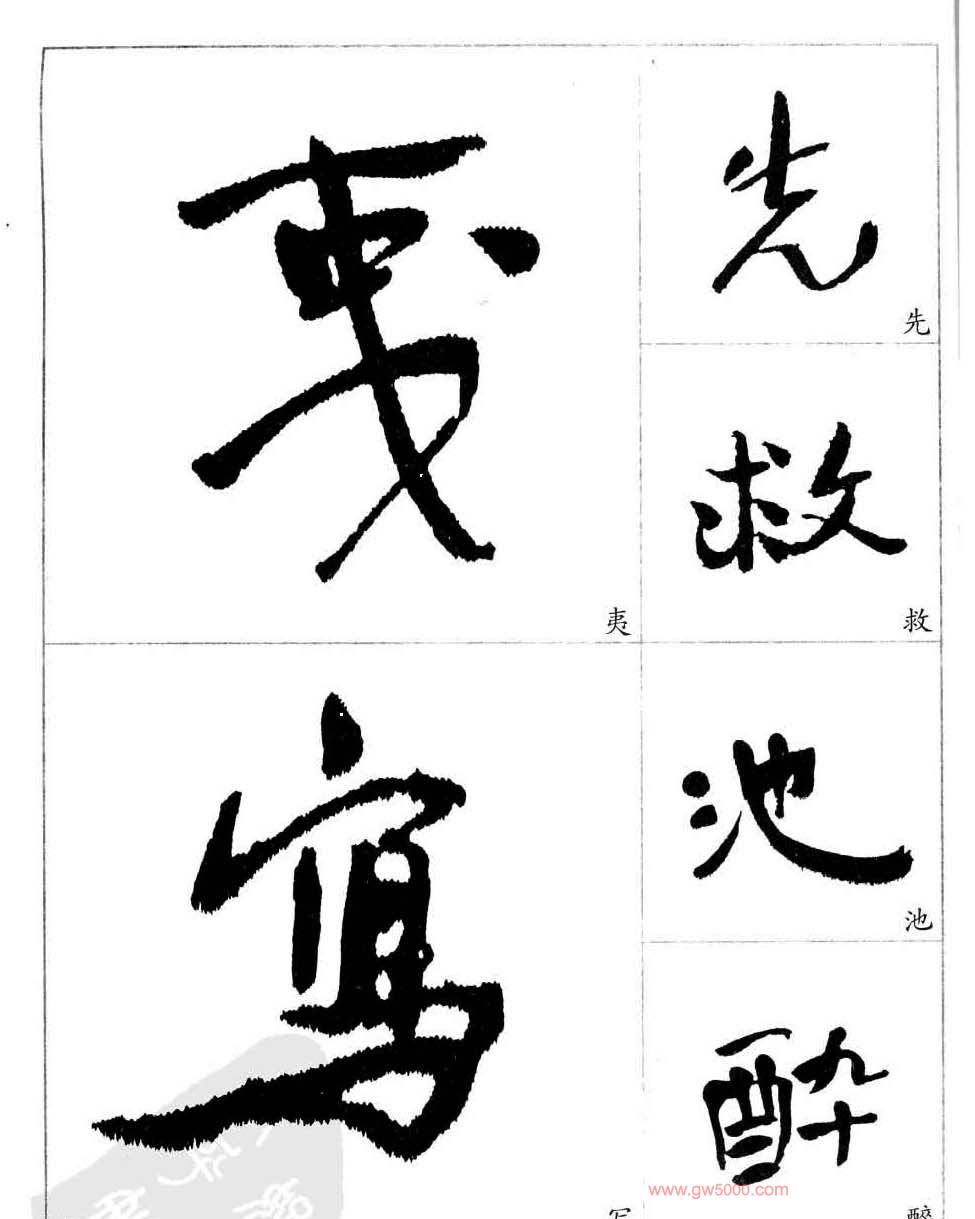 先
先
救
救
池
池
酔
醉
夷
夷
寫
写
www.gw5000.com